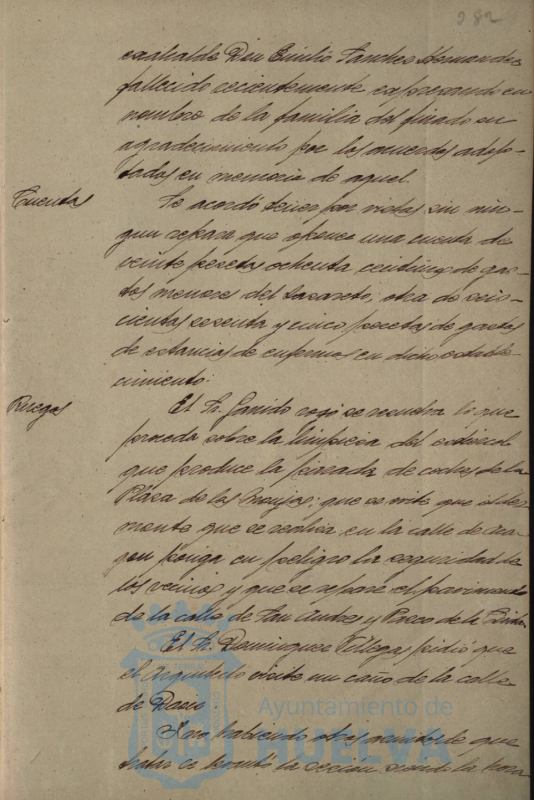 282
exalcalde Don Emilio Sanchez Hernandez
fallecido recientemente expresando en
nombre de la familia del finado su
agradecimiento por los acuerdos adop-
tados en memoria de aquel.
Cuentas
Se acordó tener por vistas sin nin-
gun reparo que oponer una cuenta de
veinte pesetas ochenta centimos de gas-
tos menores del Lazareto; otra de seis-
cientas sesenta y cinco pesetas de gastos
de estancias de enfermos en dicho estable-
cimiento.
Ruegos
El Sr. Garrido rogó se resuelva lo que
proceda sobre la limpieza del
que produce la parada de coches de la
Plaza de las Monjas; que se evite que el
monte que se realiza en la calle de Ara-
gon ponga en peligro la seguridad de
los vecinos y que se repare el pavimento
de la calle de San Andres y Paseo de la
El Sr. Dominguez Villegas pidió que
el Arquitecto visite un caño de la calle
de
Y no habiendo otros asuntos de que
tratar se levantó la sesión siendo la hora
Ayuntamiento de
HUELVA